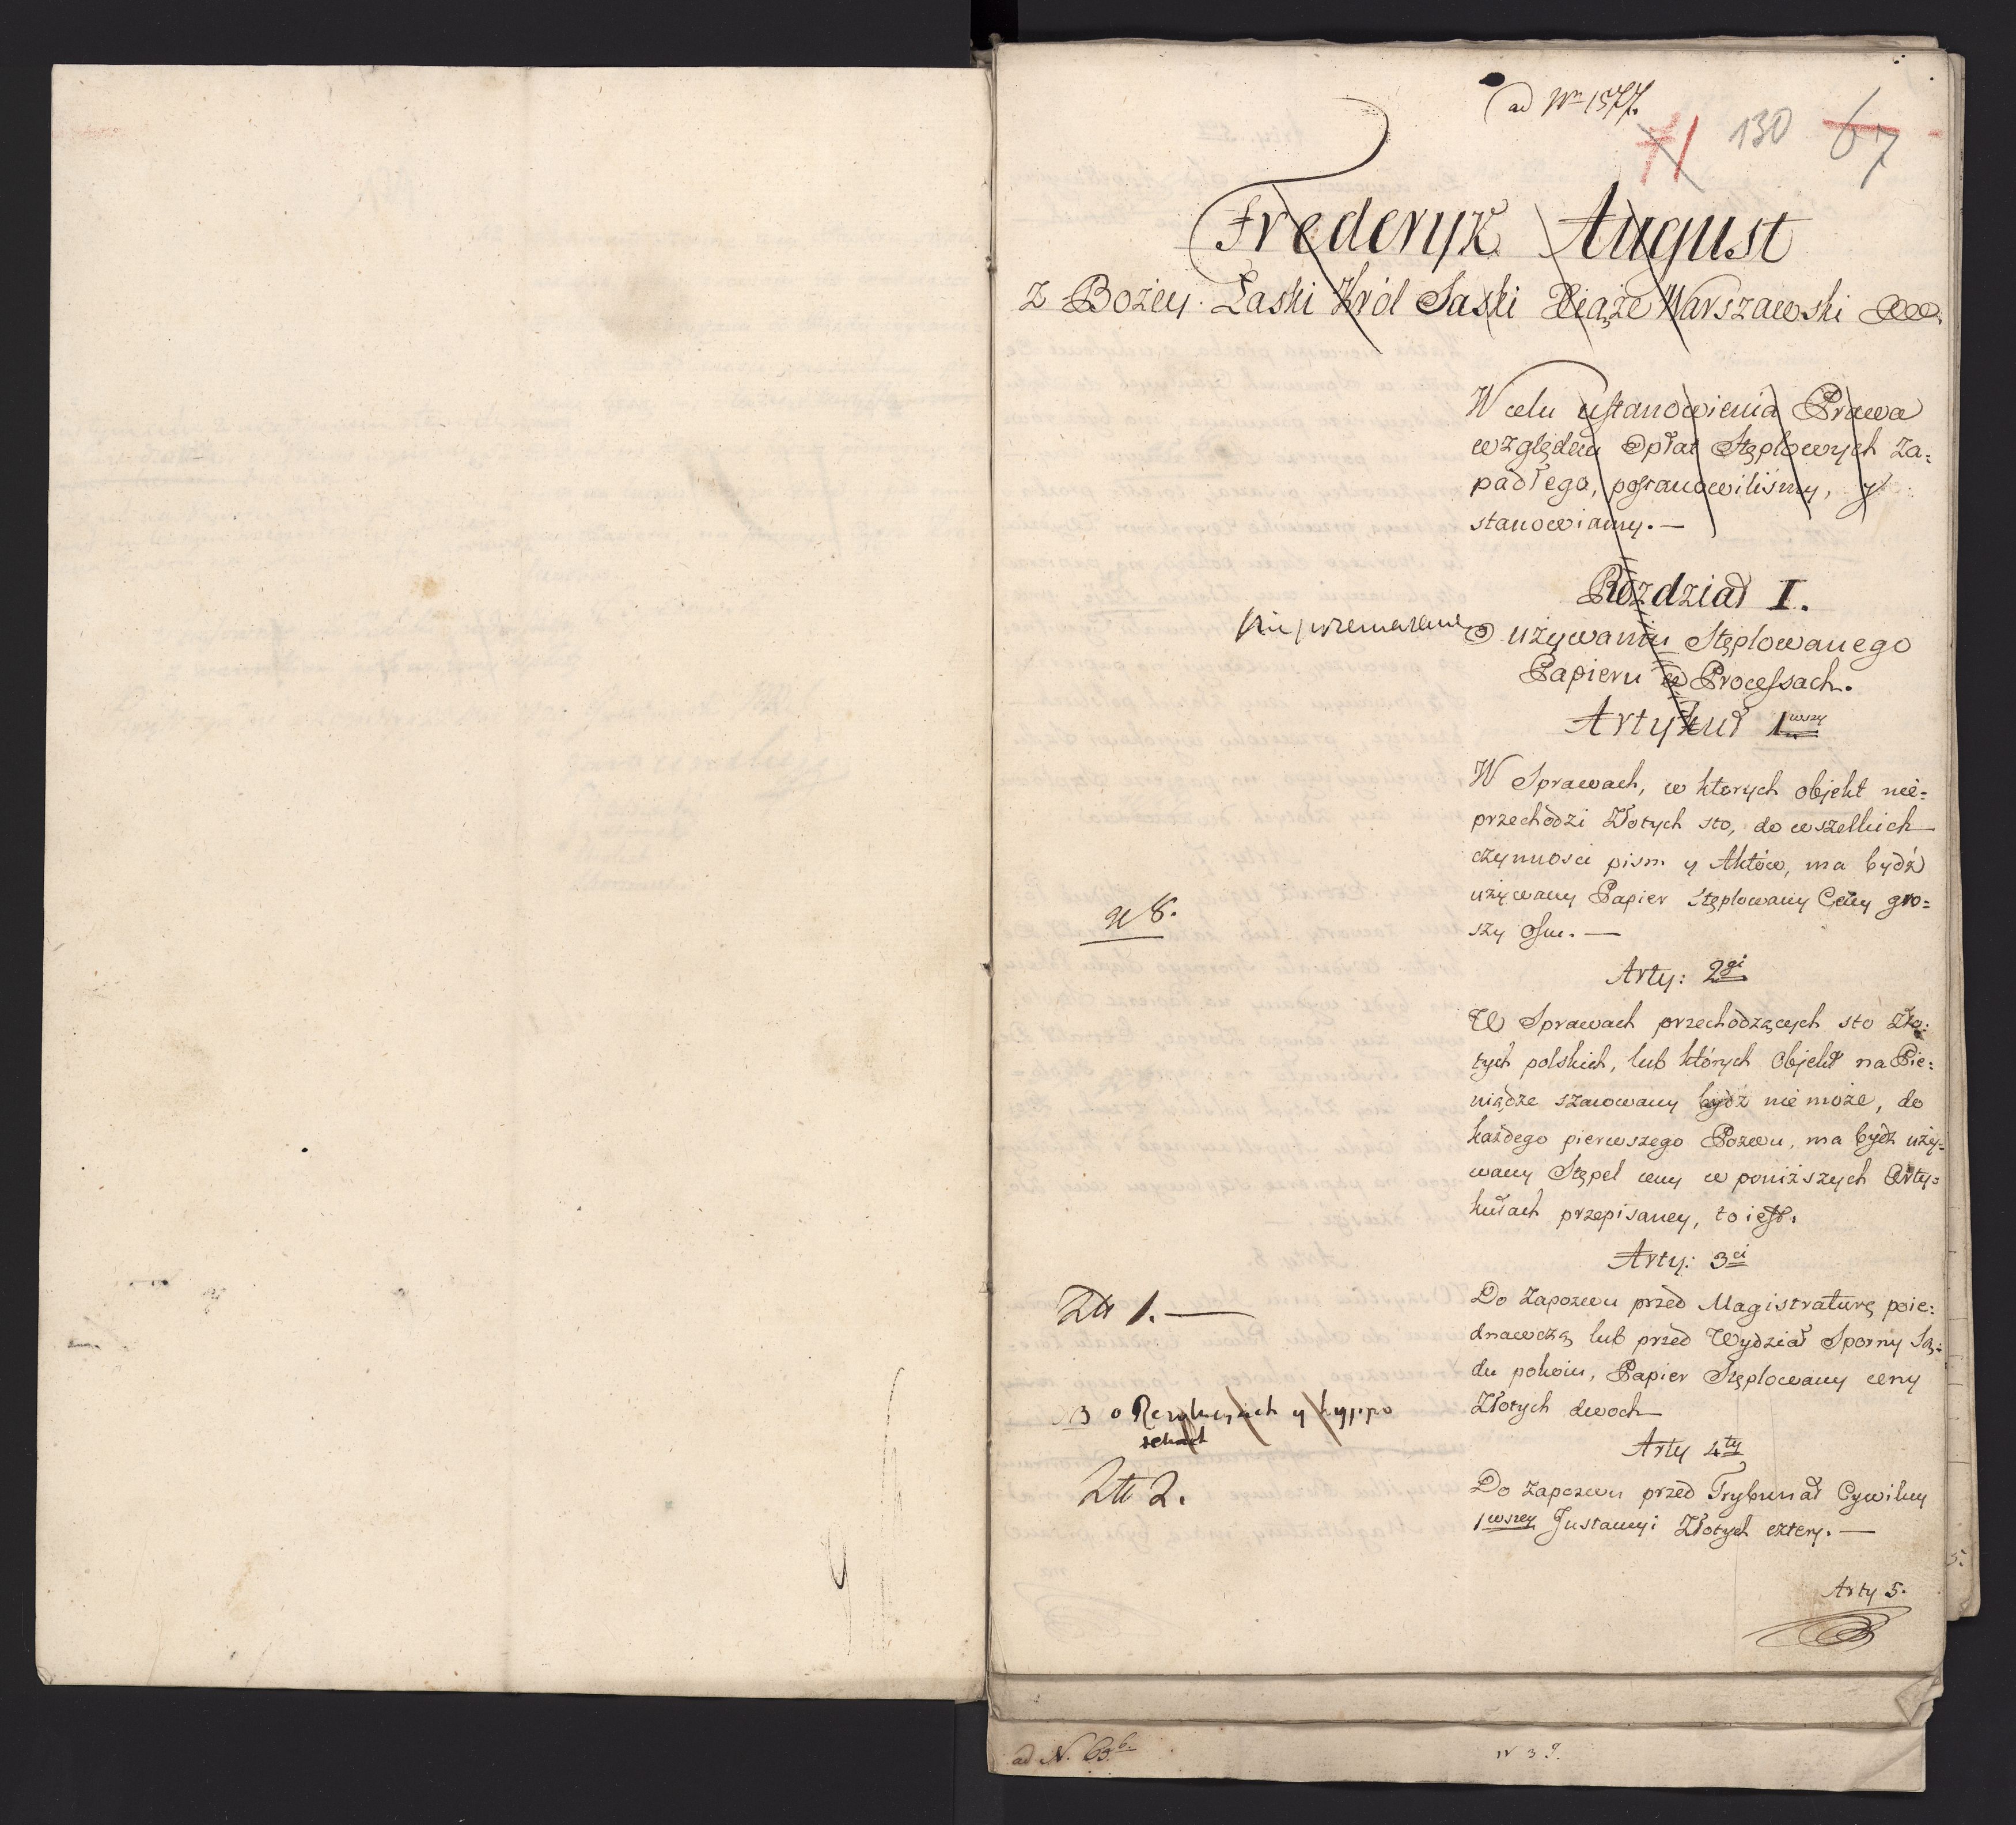 ad Nr 1577.
71 130 67
Frederyk August
z Bożey Łaski Król Saski Xiąże Warszawski &&&.
W celu ustanowienia Prawa
względem Opłat Stęplowych za-
padłego, postanowiliśmy, y
stanowiemy. —
Rozdział I.
O używaniu Stęplowanego
Papieru w Processach.
Artykuł 1wszy
W Sprawach, w ktorych objekt nie-
przechodzi Złotych sto, do wszelkich
czynnosci pism y Aktów, ma bydź
używany Papier stęplowany Ceny gro-
szy Osm. —
g 8.
Arty: 2gi
W Sprawach przechodzących sto Zło-
tych polskich, lub których Objekt na Pie-
niądze szacowany bydź nie może, do
każdego pierwszego Pozwu, ma bydź uży-
wany Stępel ceny w poniższych Arty-
kułach przepisaney, to iest.
Arty: 3ci
Do Zapozwu przed Magistraturę poie-
dnawczą lub przed Wydział Sporny Są-
du pokoiu, Papier Stęplowany ceny
Złotych dwoch
Zł 1. —
Arty 4ty
Do zapozwu przed Trybunał Cywilny
1wszey Instancyi Złotych cztery. —
Zł 2.
Arty 5.
ad N. 63b.
N 39.